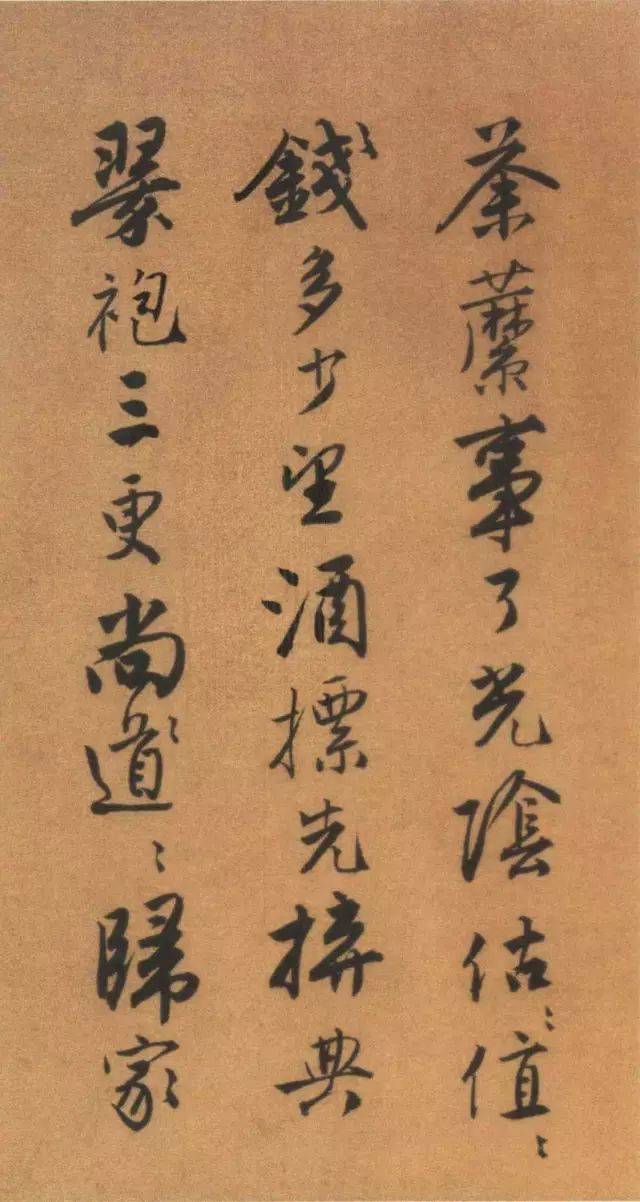 荼䕷事了光陰估值
錢多少望酒摽先拚典
翠袍三更尚道歸家